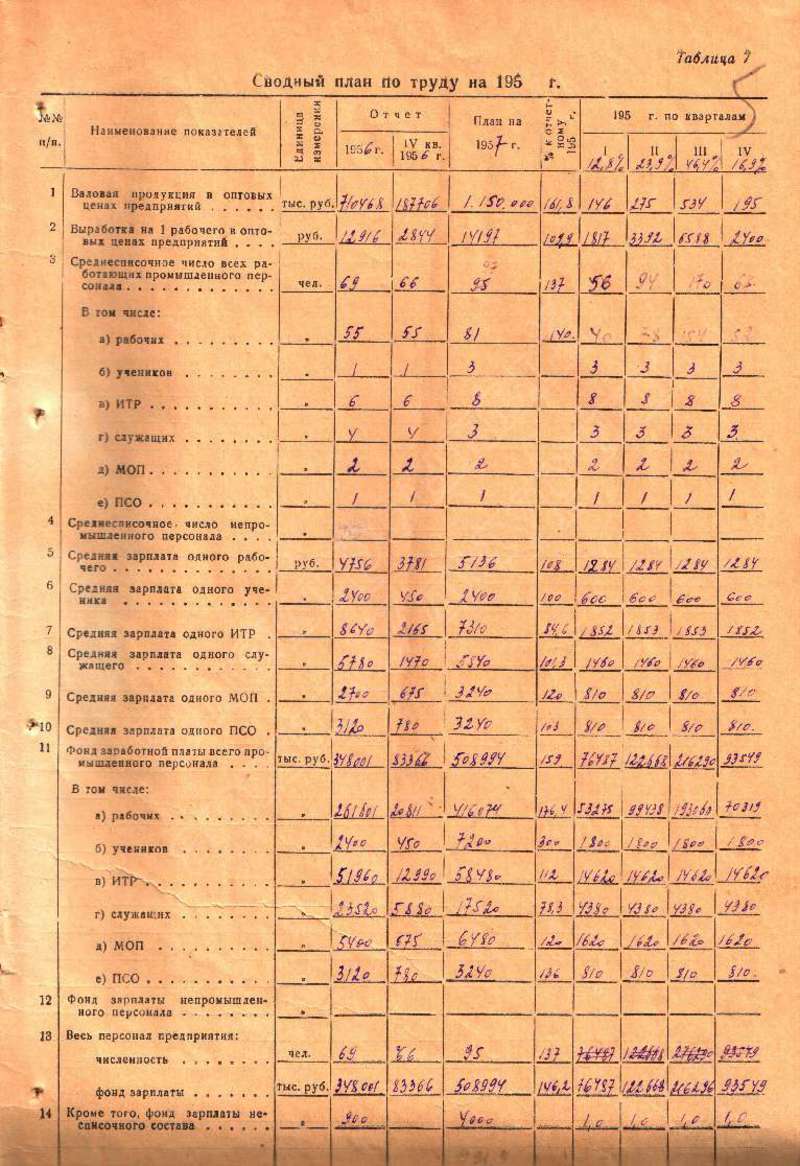 Таблица 7
Сводный план по труду на 195 г.
№№ п/п. Наименование показателей Единица измерения Отчет План на 1957 г. % к отчетному 195 г. 195 г. по кварталам
1956 г. IV кв. 1956 г. I 12,8% II 23,9% III 46,4% IV 16,9%
1 Валовая продукция в оптовых
ценах предприятий . . . . . . тыс. руб. 710468 187706 1.150.000 161,8 146 275 534 195
2 Выработка на 1 рабочего в опто-
вых ценах предприятий . . . . руб. 12916 2844 14197 109,9 1817 3392 6588 2400
3 Среднесписочное число всех ра-
ботающих промышленного пер-
сонала . . . . . . . . . . . . . чел. 69 66 95 137 56 94 170
В том числе:
а) рабочих . . . . . . . . " 55 55 81 140
б) учеников . . . . . . . . " 1 1 3 3 3 3 3
в) ИТР . . . . . . . . . . " 6 6 8 8 8 8 8
г) служащих . . . . . . . . " 4 4 3 3 3 3 3
д) МОП . . . . . . . . . . " 2 2 2 2 2 2 2
е) ПСО . . . . . . . . . . " 1 1 1 1 1 1 1
4 Среднесписочное число непро-
мышленного персонала . . . . "
5 Средняя зарплата одного рабо-
чего . . . . . . . . . . . . . . руб. 4756 3781 5136 108 1284 1284 1284 1284
6 Средняя зарплата одного уче-
ника . . . . . . . . . . . . . " 2400 450 2400 100 600 600 600 600
7 Средняя зарплата одного ИТР . " 8640 2165 7310 84,6 1852 1853 1853 1852
8 Средняя зарплата одного слу-
жащего . . . . . . . . . . . . " 5780 1470 5840 1460 1460 1460 1460
9 Средняя зарплата одного МОП . " 2700 675 3240 120 810 810 810 810
10 Средняя зарплата одного ПСО . " 3120 780 3240 103 810 810 810 810.
11 Фонд заработной платы всего про-
мышленного персонала . . . . тыс. руб. 348001 83366 508994 159. 76487 122668 216290 93549
В том числе:
а) рабочих . . . . . . . . " 261801 20811 416074 176,4 53275 99438 193060 70319
б) учеников . . . . . . . . " 2400 450 7200 300 1800 1800 1800 1800
в) ИТР . . . . . . . . . . " 51960 12990 58480 112 14620 14620 14620 14620
г) служащих . . . . . . . . " 23520 5880 17520 78,3 4380 4380 4380 4380
д) МОП . . . . . . . . . . " 5400 675 6480 120 1620 1620 1620 1620
е) ПСО . . . . . . . . . . " 3120 780 3240 136 810 810 810 810.
12 Фонд зарплаты непромышлен-
ного персонала . . . . . . . . "
13 Весь персонал предприятия:
численность . . . . . . . . чел. 69 66 95 137 76487 93549
фонд зарплаты . . . . . . . тыс. руб. 348.001 83366 508994 146,2 76487 122.668 216296 93549
14 Кроме того, фонд зарплаты не-
списочного состава . . . . . . " 900 4000 1,0 1,0 1,0 1,0